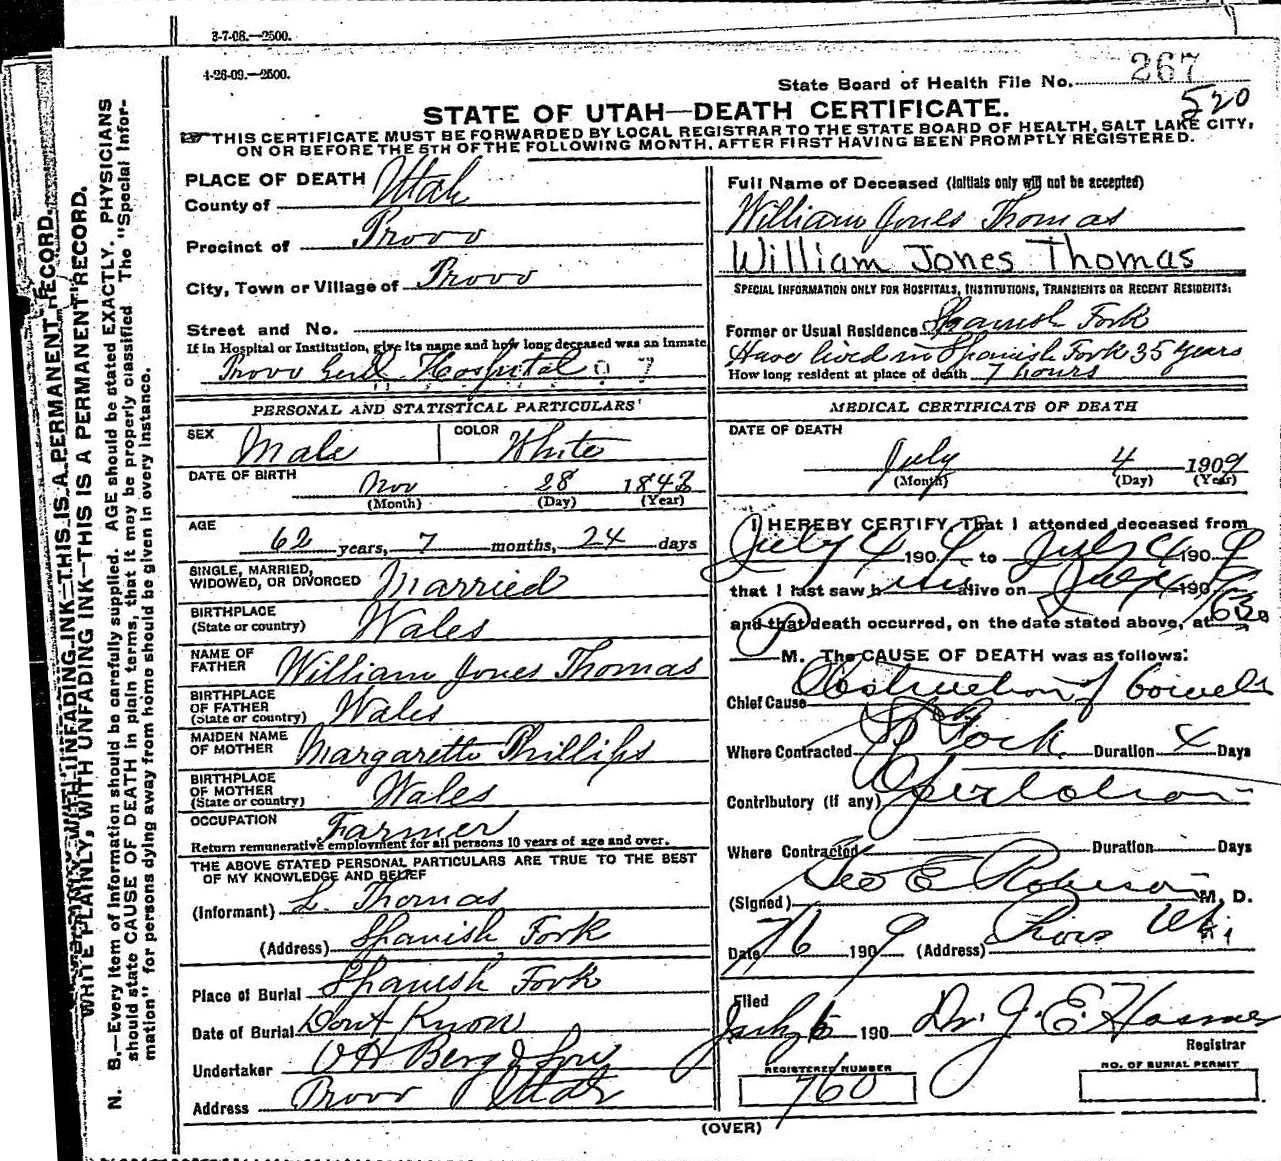 3-7-08.—2500.
4-26-09.—2500.
State Board of Health File No. 267
520
STATE OF UTAH—DEATH CERTIFICATE.
THIS CERTIFICATE MUST BE FORWARDED BY LOCAL REGISTRAR TO THE STATE BOARD OF HEALTH, SALT LAKE CITY,
ON OR BEFORE THE 5TH OF THE FOLLOWING MONTH, AFTER FIRST HAVING BEEN PROMPTLY REGISTERED.
WRITE PLAINLY, WITH UNFADING INK—THIS IS A PERMANENT RECORD.
N. B.—Every item of information should be carefully supplied. AGE should be stated EXACTLY. PHYSICIANS
should state CAUSE OF DEATH in plain terms, that it may be properly classified. The "Special Infor-
mation" for persons dying away from home should be given in every instance.
PLACE OF DEATH
County of Utah
Precinct of Provo
City, Town or Village of Provo
Street and No.
If in Hospital or Institution, give its name and how long deceased was an inmate
Provo Genl Hospital
PERSONAL AND STATISTICAL PARTICULARS
SEX Male COLOR White
DATE OF BIRTH
Nov 28 1843
(Month) (Day) (Year)
AGE
62 years, 7 months, 24 days
SINGLE, MARRIED,
WIDOWED, OR DIVORCED Married
BIRTHPLACE
(State or country) Wales
NAME OF
FATHER William Jones Thomas
BIRTHPLACE
OF FATHER
(State or country) Wales
MAIDEN NAME
OF MOTHER Margarette Phillips
BIRTHPLACE
OF MOTHER
(State or country) Wales
OCCUPATION Farmer
Return remunerative employment for all persons 10 years of age and over.
THE ABOVE STATED PERSONAL PARTICULARS ARE TRUE TO THE BEST
OF MY KNOWLEDGE AND BELIEF
(Informant) L. Thomas
(Address) Spanish Fork
Place of Burial Spanish Fork
Date of Burial Dont Know
Undertaker O H Berg & Son
Address Provo Utah
Full Name of Deceased (Initials only will not be accepted)
William Jones Thomas
William Jones Thomas
SPECIAL INFORMATION ONLY FOR HOSPITALS, INSTITUTIONS, TRANSIENTS OR RECENT RESIDENTS:
Former or Usual Residence Spanish Fork
Have lived in Spanish Fork 35 years
How long resident at place of death 7 hours
MEDICAL CERTIFICATE OF DEATH
DATE OF DEATH
July 4 1909
(Month) (Day) (Year)
I HEREBY CERTIFY, That I attended deceased from
July 4 1909 to July 4 1909
that I last saw him alive on July 4 190
and that death occurred, on the date stated above, at 630
P M. The CAUSE OF DEATH was as follows:
Chief Cause Obstruction of bowels
Where Contracted Sp Fork Duration 4 Days
Contributory (if any) Operation
Where Contracted Duration Days
(Signed) Geo E Robison M. D.
Date 7/6 1909 (Address) Provo Ut.
Filed
July 6 190 Dr. J. E. Hosmer
Registrar
REGISTERED NUMBER
760
NO. OF BURIAL PERMIT
(OVER)